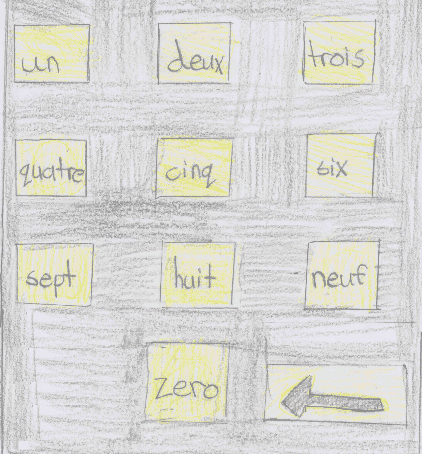 un deux trois
quatre cinq six
sept huit neuf
zero